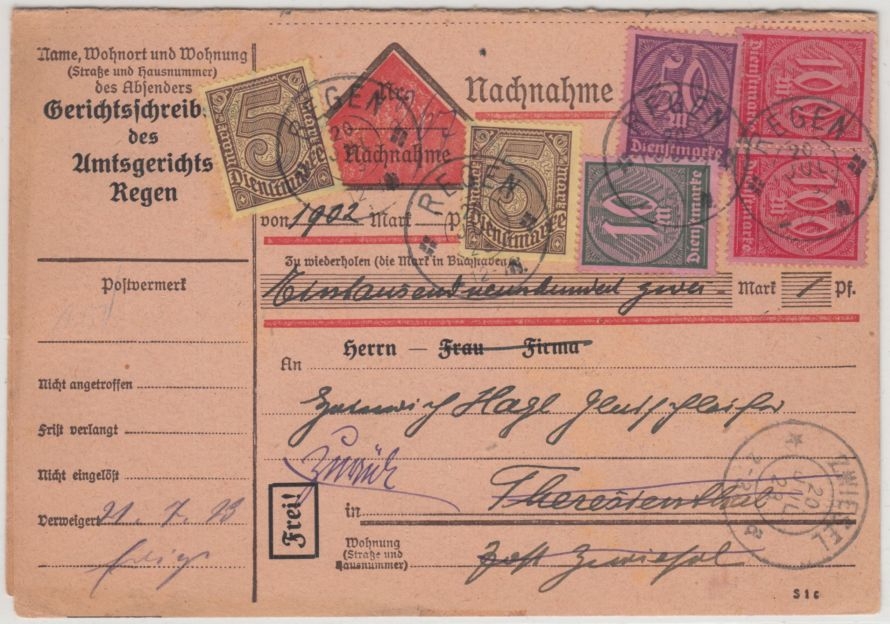 Name, Wohnort und Wohnung
(Straße und Hausnummer)
des Absenders
Gerichtsschreib
des
Amtsgerichts
Regen
Postvermerk
Nicht angetroffen
Frist verlangt
Nicht eingelöst
Verweigert 21. 7. 23
5
Dienstmarke
REGEN
20
Nachnahme
Nachnahme
von 1902 Mark P
REGEN
5
Dienstmarke
10
m
Dienstmarke
50
M
Dienstmarke
REGEN
20
JUL
100
Dienstmarke
REGEN
100
Dienstmarke
Zu wiederholen (die Mark in Buchstaben)
Eintausendneunhundert zwei Mark / Pf.
Herrn – Frau – Firma
An
Heinrich Hagl Glasschleifer
Zurück
in Theresienthal
Frei!
Wohnung
(Straße und
Hausnummer)
Post Zwiesel
ZWIESEL
20
JUL
23
S1c